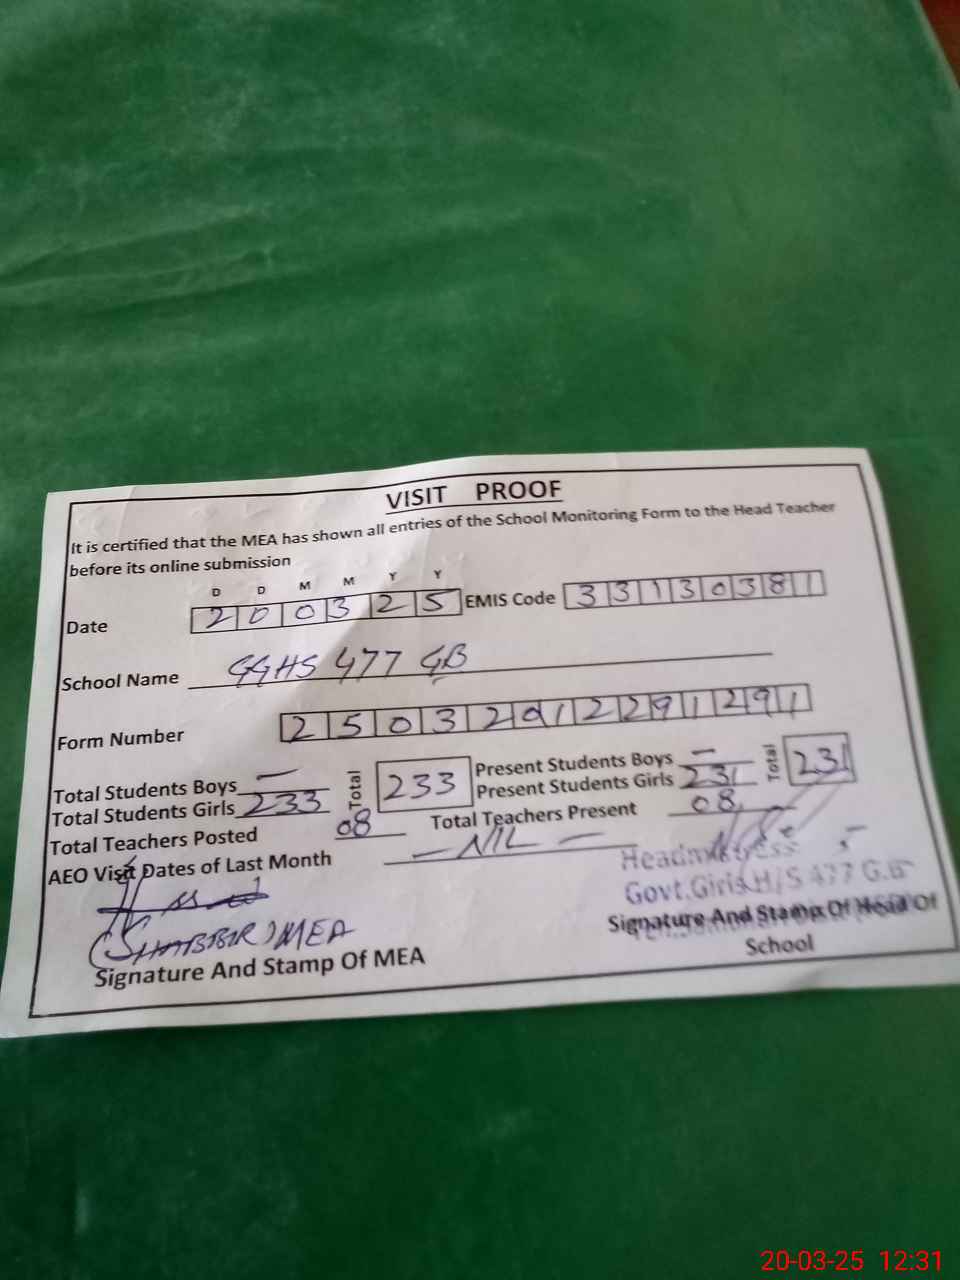 VISIT PROOF
It is certified that the MEA has shown all entries of the School Monitoring Form to the Head Teacher
before its online submission
D D M M Y Y
Date 2 0 0 3 2 5 EMIS Code 3 3 1 3 0 3 8 1
School Name GGHS 477 GB
Form Number 2 5 0 3 2 0 1 2 2 9 1 2 9 1
Total Students Boys — Total 233 Present Students Boys — Total 231
Total Students Girls 233 Present Students Girls 231
Total Teachers Posted 08 Total Teachers Present 08
AEO Visit Dates of Last Month — NIL —
Headmistress
Govt.Girls.H/S 477 G.B
(SHABBIR) MEA
Signature And Stamp Of MEA
Signature And Stamp Of Head Of
School
20-03-25 12:31